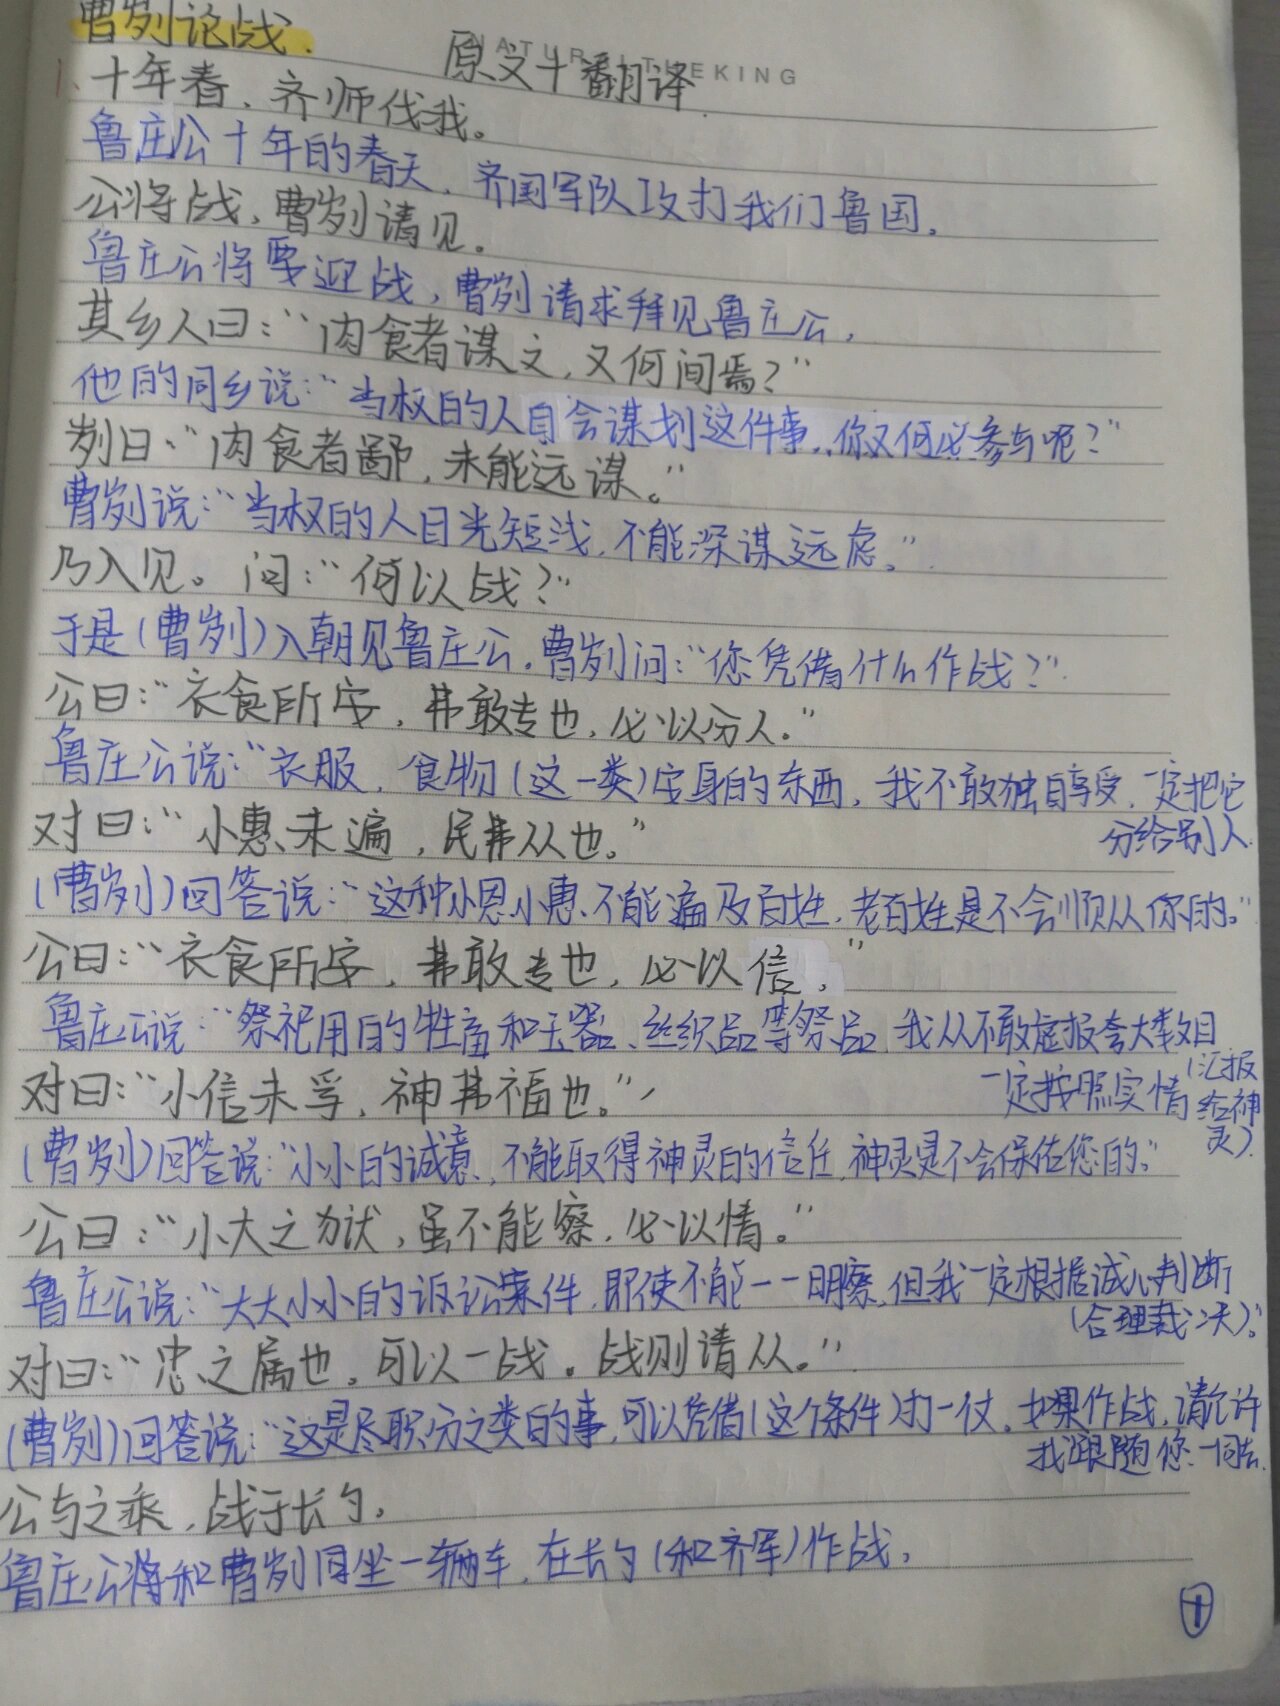 曹刿论战.
原文+翻译
NATUR THEKING
1、十年春，齐师伐我。
鲁庄公十年的春天，齐国军队攻打我们鲁国。
公将战，曹刿请见。
鲁庄公将要迎战，曹刿请求拜见鲁庄公，
其乡人曰：“肉食者谋文，又何间焉？”
他的同乡说：“当权的人自会谋划这件事，你又何必参与呢？”
刿曰：“肉食者鄙，未能远谋。”
曹刿说：“当权的人目光短浅，不能深谋远虑。”
乃入见。问：“何以战？”
于是（曹刿）入朝见鲁庄公，曹刿问：“您凭借什么作战？”
公曰：“衣食所安，弗敢专也，必以分人。”
鲁庄公说：“衣服，食物（这一类）安身的东西，我不敢独自享受，一定把它
分给别人
对曰：“小惠未遍，民弗从也。”
（曹刿）回答说：“这种小恩小惠不能遍及百姓，老百姓是不会顺从你的。”
公曰：“衣食所安，弗敢专也，必以信，”
鲁庄公说：“祭祀用的牲畜和玉器、丝织品等祭品，我从不敢虚报夸大数目
一定按照实情（汇报
给神
灵）
对曰：“小信未孚，神弗福也。”
（曹刿）回答说：“小小的诚意，不能取得神灵的信任，神灵是不会保佑您的。”
公曰：“小大之狱，虽不能察，必以情。”
鲁庄公说：“大大小小的诉讼案件，即使不能一一明察，但我一定根据诚心判断
（合理裁决）。”
对曰：“忠之属也，可以一战。战则请从。”
（曹刿）回答说：“这是尽职分之类的事，可以凭借（这个条件）打一仗。如果作战，请允许
我跟随您一同去
公与之乘，战于长勺。
鲁庄公将和曹刿同坐一辆车，在长勺（和齐军）作战，
1